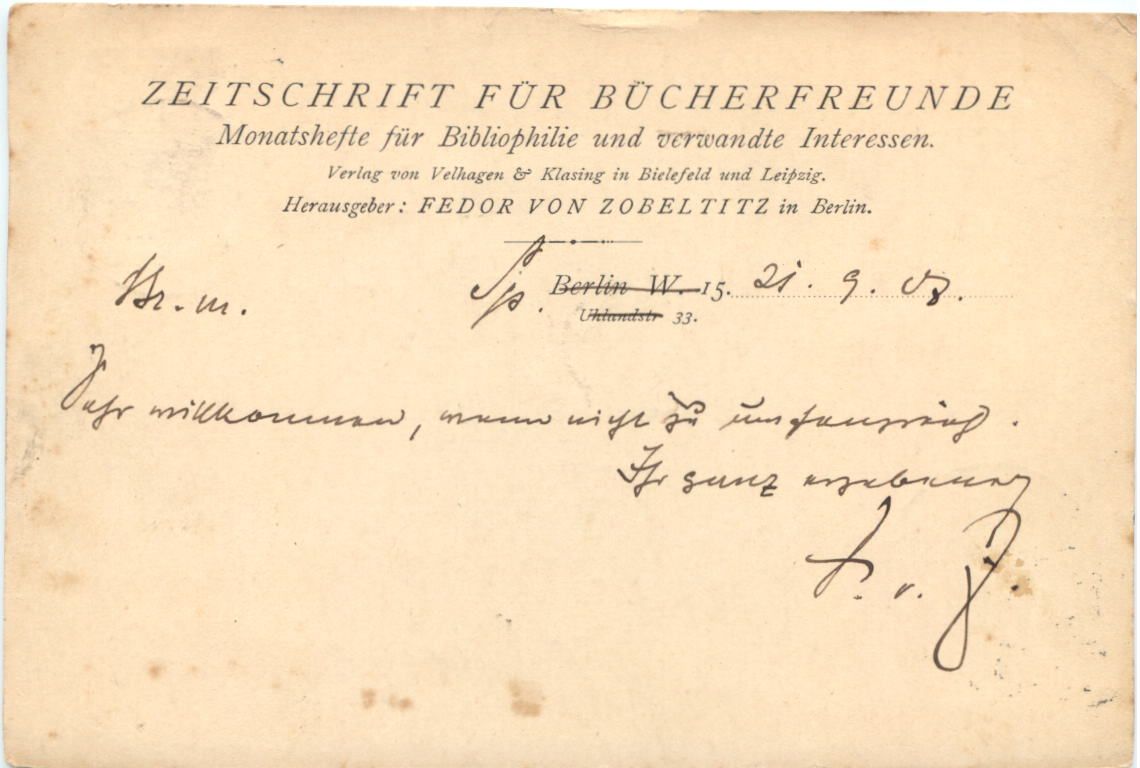 ZEITSCHRIFT FÜR BÜCHERFREUNDE
Monatshefte für Bibliophilie und verwandte Interessen.
Verlag von Velhagen & Klasing in Bielefeld und Leipzig.
Herausgeber: FEDOR VON ZOBELTITZ in Berlin.
Sp. Berlin W. 15. 21. 9. 08.
Uhlandstr 33.
Sehr willkommen, wenn nicht zu umfangreich.
Ihr ganz ergebener
F. v. Z.